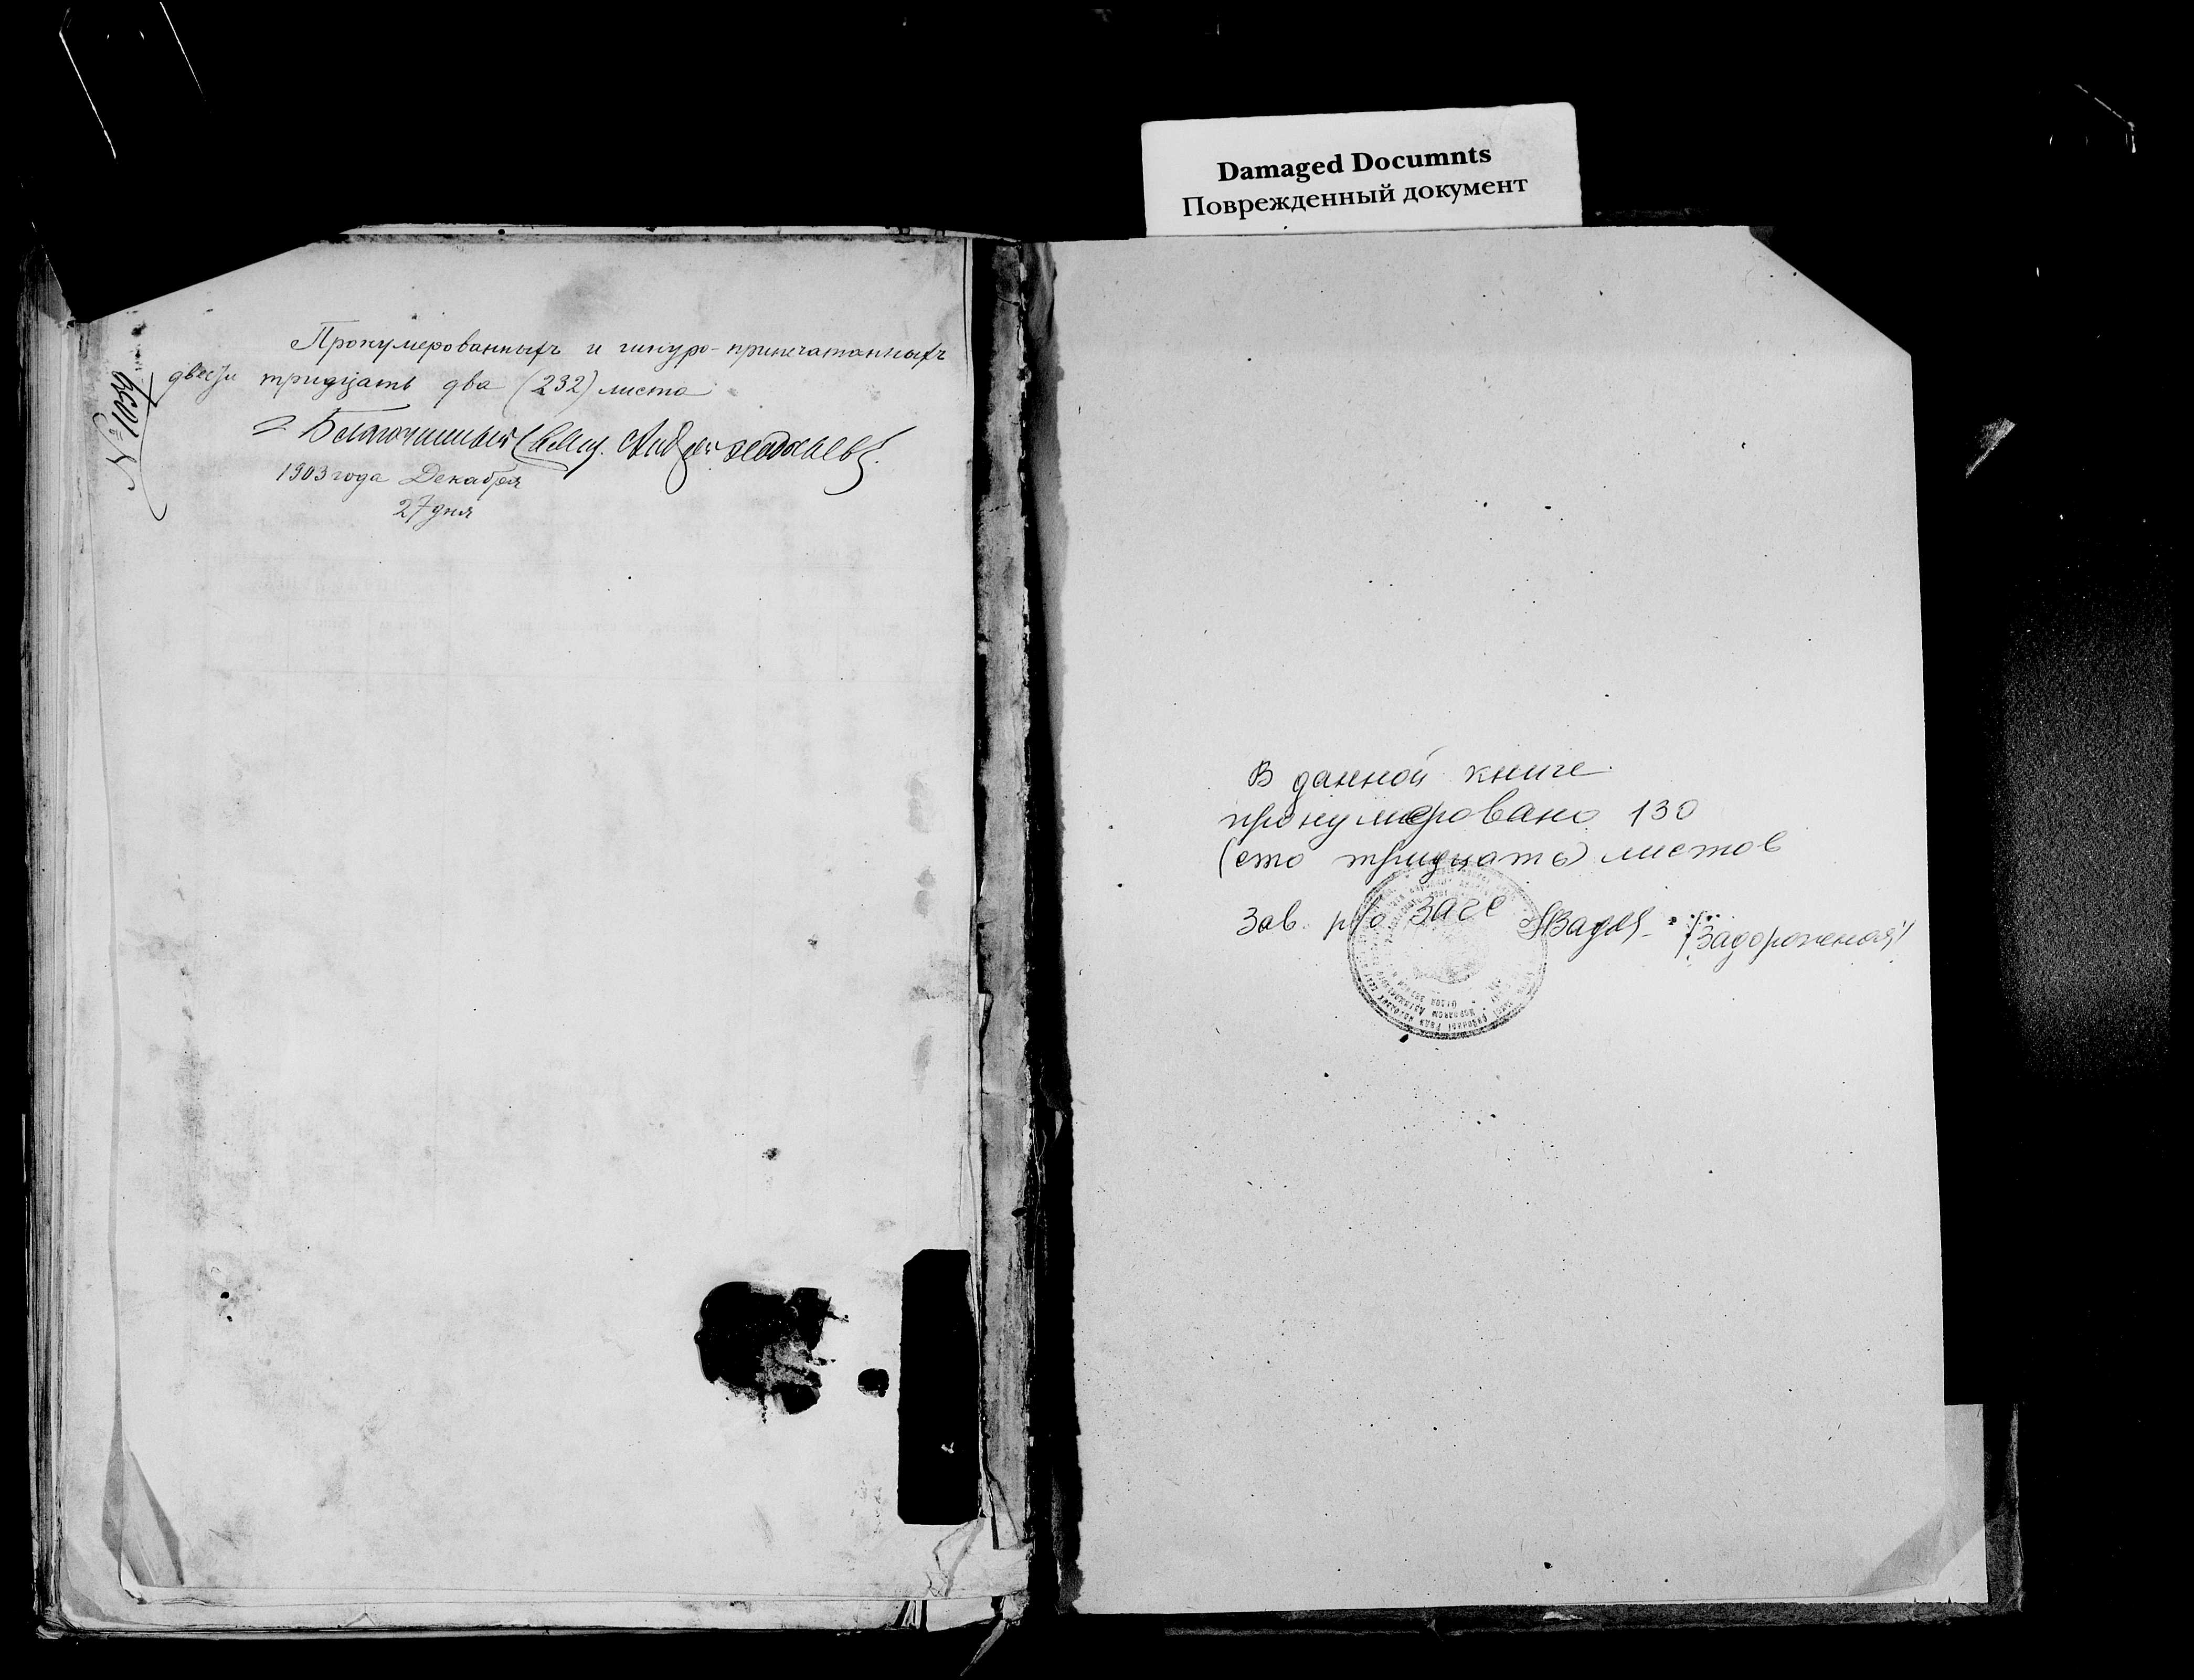 Damaged Documnts
Поврежденный документ
Пронумерованныхъ и шнуро-припечатанныхъ
двести тридцать два (232) листа
Благочинный Свящ.
1903 года Декабря
27 дня
№ 1039
В данной книге
пронумеровано 130
(сто тридцать) листов
Зав. р/о Загс /Задорожная/